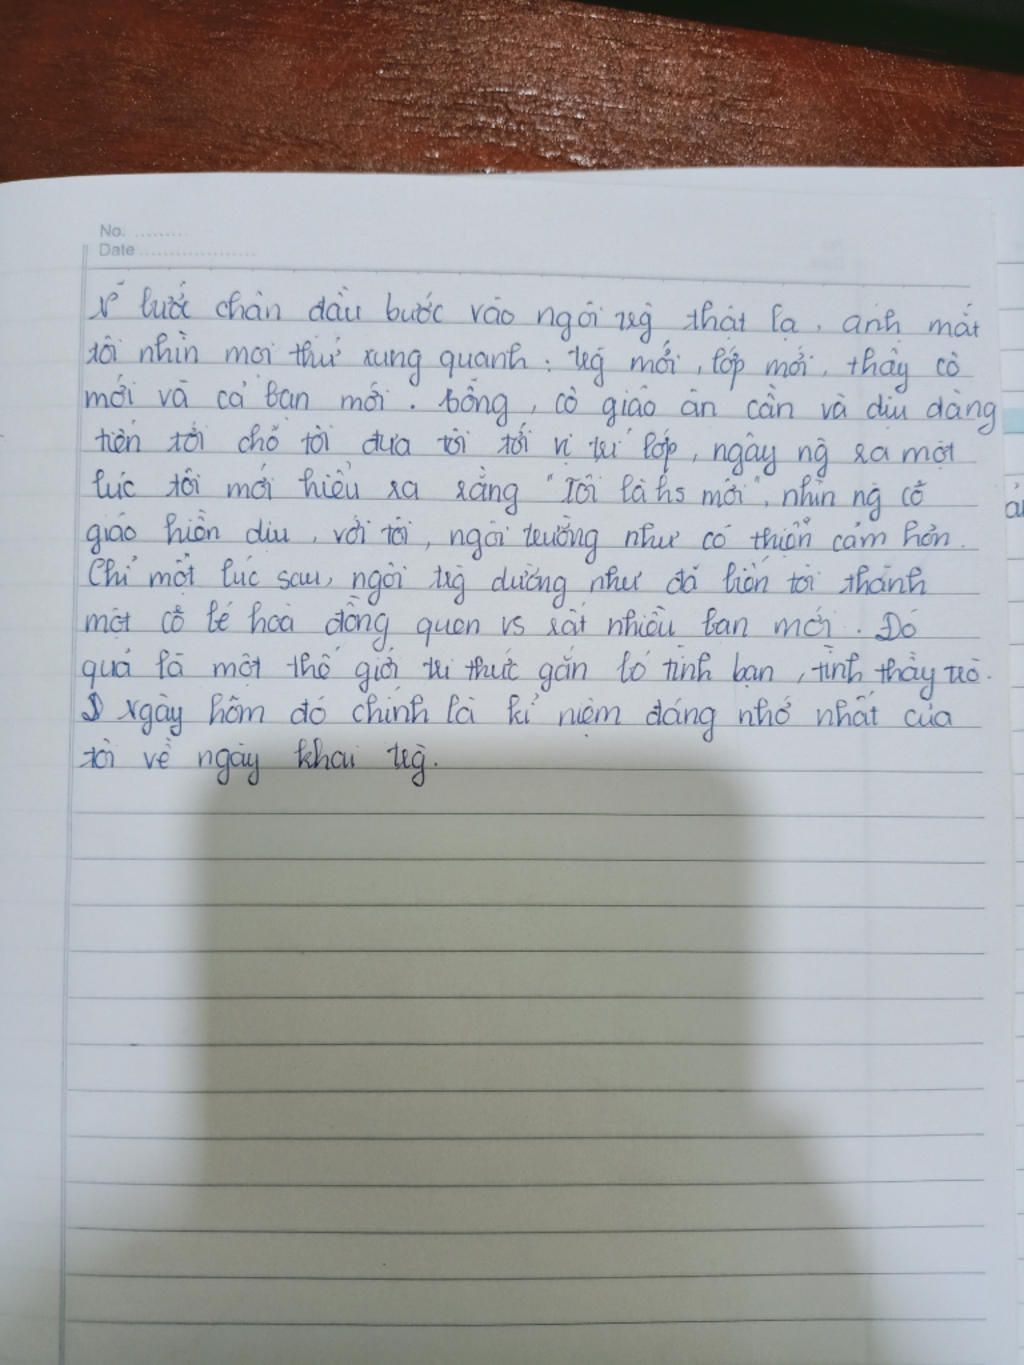 No. ..........
Date ....................
bước chân đầu bước vào ngôi trg thật lạ, ánh mắt
tôi nhìn mọi thứ xung quanh: trg mới, lớp mới, thầy cô
mới và cả bạn mới. bỗng, cô giáo ân cần và dịu dàng
tiến tới chỗ tôi đưa tôi tới vị trí lớp, ngây ng ra một
lúc tôi mới hiểu ra rằng "Tôi là hs mới", nhìn ng cô
giáo hiền dịu, với tôi, ngôi trường như có thiện cảm hơn.
Chỉ một lúc sau, ngôi trg dường như đã biến tôi thành
một cô bé hoà đồng quen vs rất nhiều bạn mới. Đó
quả là một thế giới tri thức gắn bó tình bạn, tình thầy trò.
Ngày hôm đó chính là kỉ niệm đáng nhớ nhất của
tôi về ngày khai trg.